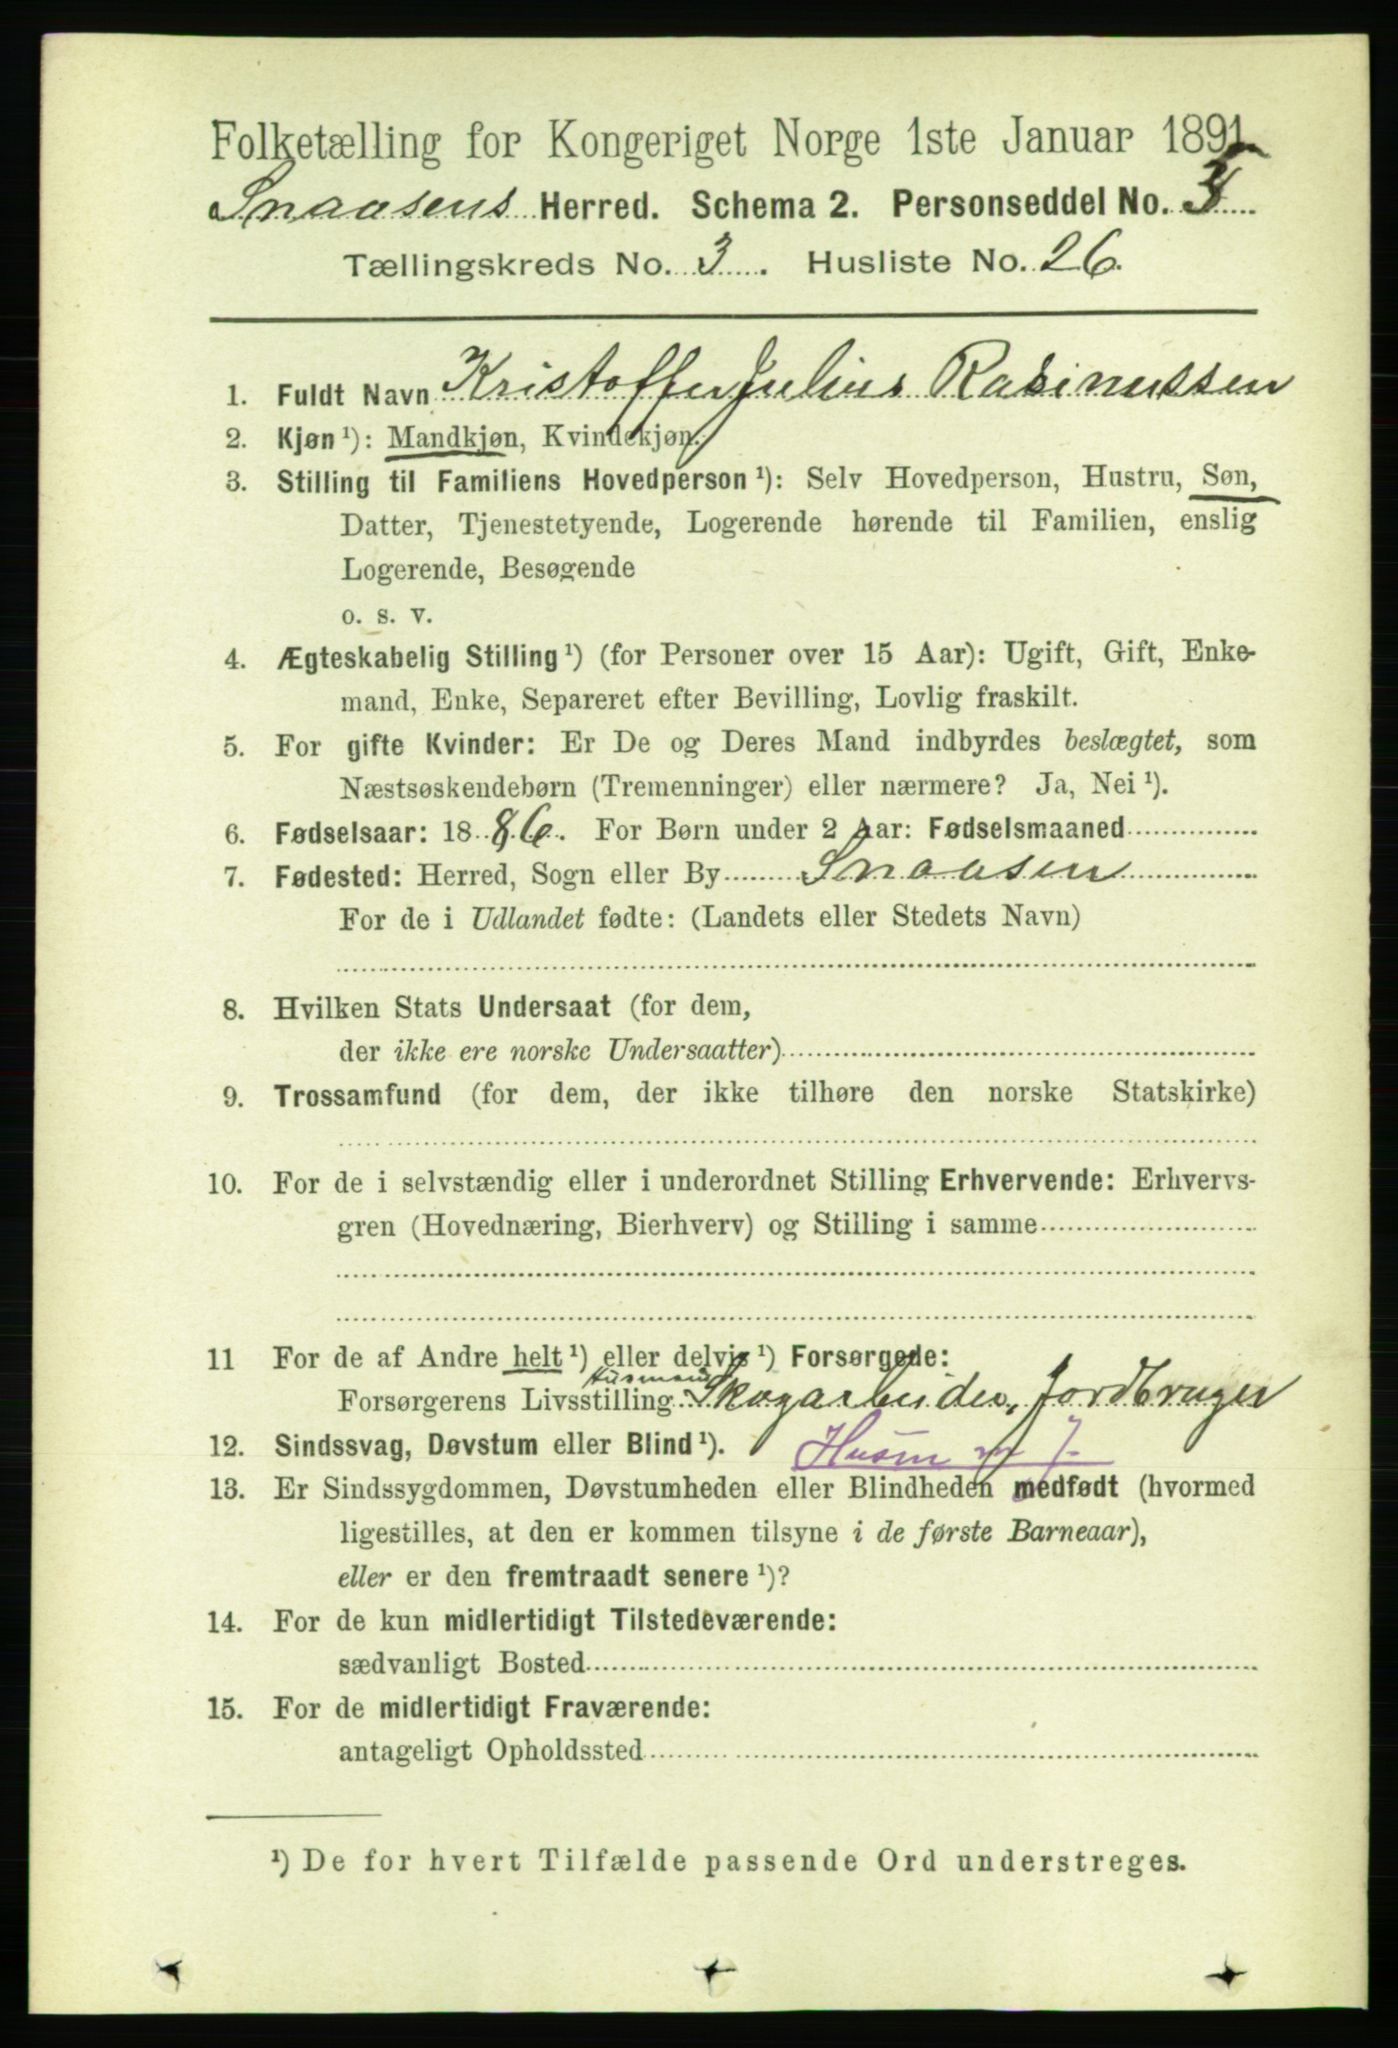 Folketælling for Kongeriget Norge 1ste Januar 1891.
Snaasens Herred. Schema 2. Personseddel No.
Tællingskreds No. 3. Husliste No. 26.
1. Fuldt Navn Kristoffer Julius Rasmussen
2. Kjøn ¹): Mandkjøn, Kvindekjøn.
3. Stilling til Familiens Hovedperson ¹): Selv Hovedperson, Hustru, Søn,
Datter, Tjenestetyende, Logerende hørende til Familien, enslig
Logerende, Besøgende
o. s. v.
4. Ægteskabelig Stilling ¹) (for Personer over 15 Aar): Ugift, Gift, Enke-
mand, Enke, Separeret efter Bevilling, Lovlig fraskilt.
5. For gifte Kvinder: Er De og Deres Mand indbyrdes beslægtet, som
Næstsøskendebørn (Tremenninger) eller nærmere? Ja, Nei ¹).
6. Fødselsaar: 1886. For Børn under 2 Aar: Fødselsmaaned
7. Fødested: Herred, Sogn eller By Snaasen
For de i Udlandet fødte: (Landets eller Stedets Navn)
8. Hvilken Stats Undersaat (for dem,
der ikke ere norske Undersaatter)
9. Trossamfund (for dem, der ikke tilhøre den norske Statskirke)
10. For de i selvstændig eller i underordnet Stilling Erhvervende: Erhvervs-
gren (Hovednæring, Bierhverv) og Stilling i samme
11 For de af Andre helt ¹) eller delvis ¹) Forsørgede:
Husmand
Forsørgerens Livsstilling Skogarbeider, Jordbruger
12. Sindssvag, Døvstum eller Blind ¹). Husm m J.
13. Er Sindssygdommen, Døvstumheden eller Blindheden medfødt (hvormed
ligestilles, at den er kommen tilsyne i de første Barneaar),
eller er den fremtraadt senere ¹)?
14. For de kun midlertidigt Tilstedeværende:
sædvanligt Bosted
15. For de midlertidigt Fraværende:
antageligt Opholdssted
¹) De for hvert Tilfælde passende Ord understreges.